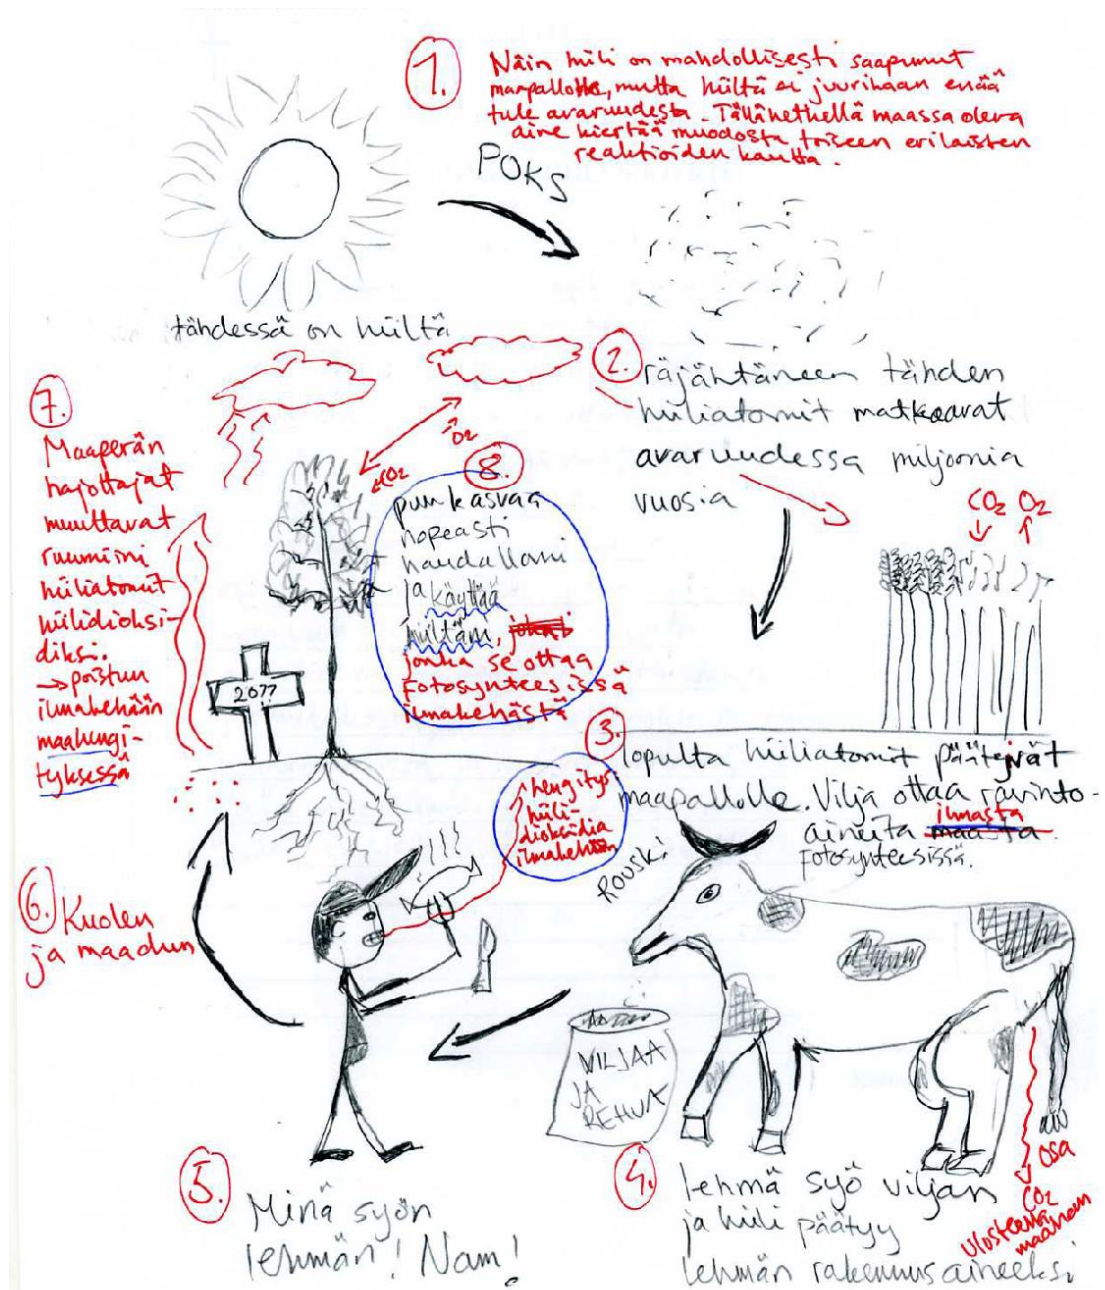 1.
Näin hiili on mahdollisesti saapunut
maapallolle, mutta hiiltä ei juurikaan enää
tule avaruudesta. Tällä hetkellä maassa oleva
aine kiertää muodosta toiseen erilaisten
reaktioiden kautta.
POKS
tähdessä on hiiltä
2.
räjähtäneen tähden
hiiliatomit matkaavat
avaruudessa miljoonia
vuosia
CO2 O2
7.
Maaperän
hajottajat
muuttavat
ruumiini
hiiliatomit
hiilidioksi-
diksi.
→ poistuu
ilmakehään
maahengi-
tyksessä
O2
CO2
8.
puu kasvaa
nopeasti
haudallani
ja käyttää
hiiltäni,
jonka se ottaa
fotosynteesissä
ilmakehästä
2077
3.
lopulta hiiliatomit päätyvät
maapallolle. Vilja ottaa ravinto-
aineita maasta ilmasta
fotosynteesissä.
hengitys
hiili-
dioksidia
ilmakehään
ROUSK!
6. Kuolen
ja maadun
VILJAA
JA
REHUA
5.
Minä syön
lehmän! Nam!
4.
lehmä syö viljan
ja hiili päätyy
lehmän rakennusaineeksi
osa
CO2
ulosteena
maahan